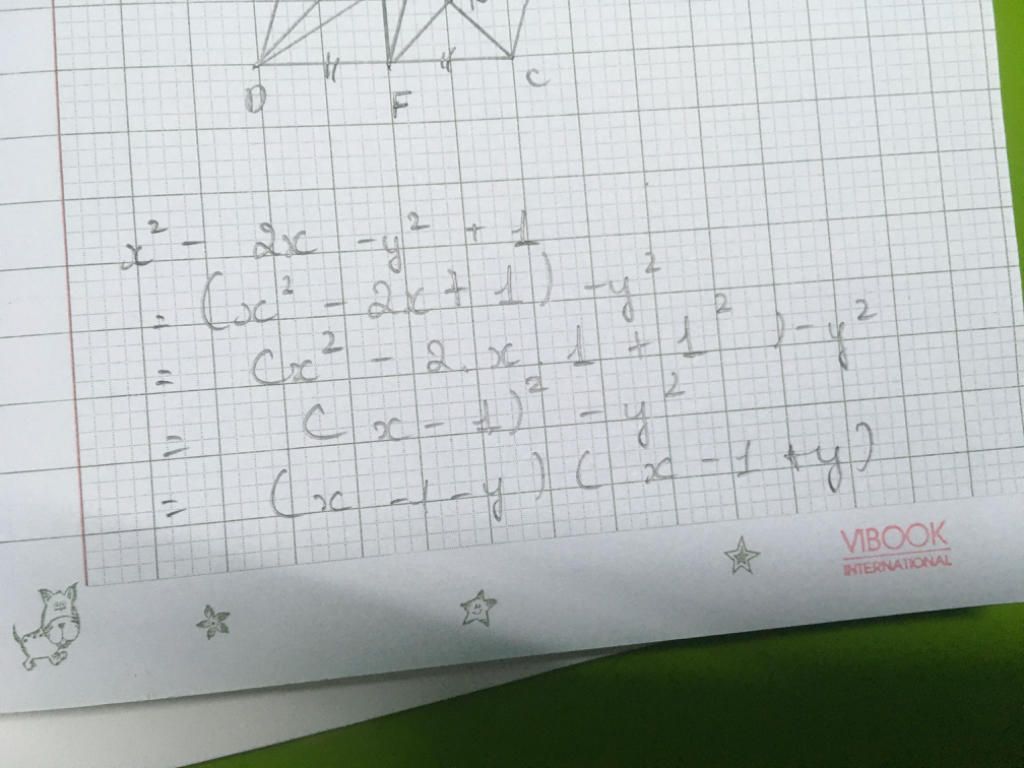 D F C
x² - 2x - y² + 1
= (x² - 2x + 1) - y²
= (x² - 2.x.1 + 1²) - y²
= (x - 1)² - y²
= (x - 1 - y)(x - 1 + y)
VIBOOK
INTERNATIONAL